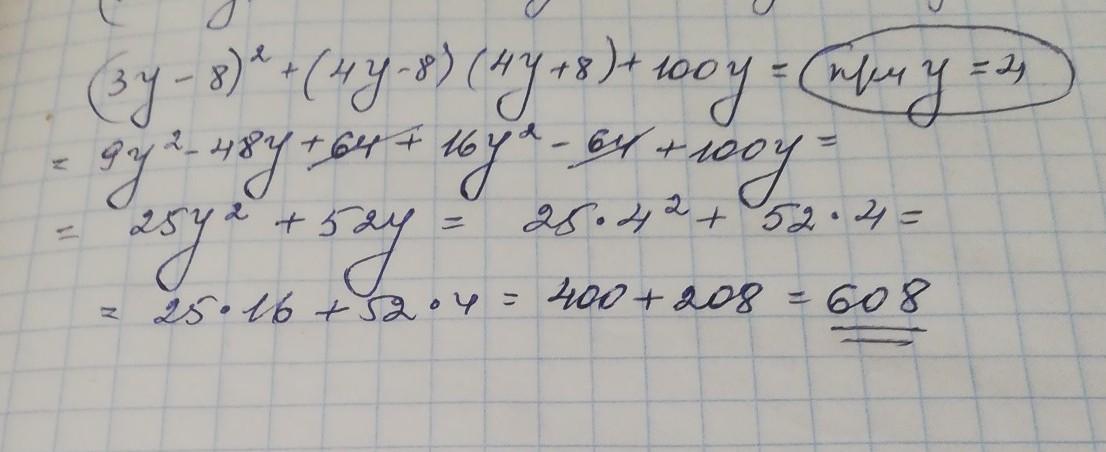 (3y - 8)² + (4y - 8)(4y + 8) + 100y = при y = 4
= 9y² - 48y + 64 + 16y² - 64 + 100y =
= 25y² + 52y = 25 · 4² + 52 · 4 =
= 25 · 16 + 52 · 4 = 400 + 208 = 608